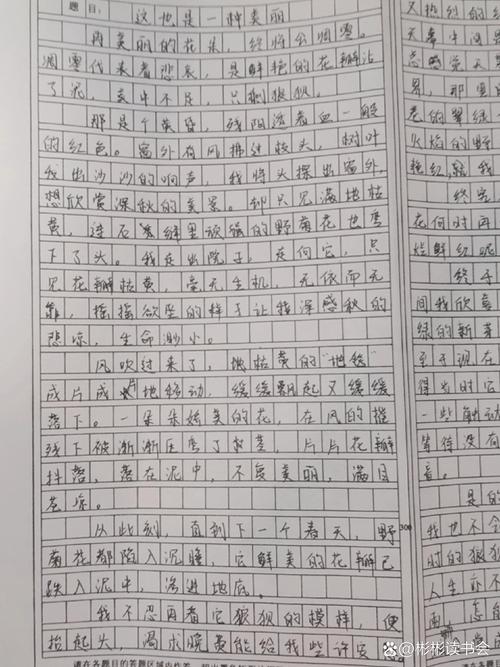 题目：这也是一种美丽
再美丽的花朵，终将会凋零。
凋零代表着悲哀，是鲜艳的花瓣沾
了泥，美中不足，只剩狼狈。
那是个黄昏，残阳透着血一般
的红色。窗外有风拂过枝头，树叶
发出沙沙的响声，我将头探出窗外，
想欣赏深秋的美景。却只见满地枯
黄，连石缝里顽强的野菊花也弯
下了头。我走出院子，走向它，只
见花瓣枯黄，毫无生机，无依而无
靠，摇摇欲坠的样子让我深感秋的
悲凉，生命渺小。
风吹过来了，地枯黄的“地毯”
成片成片地移动，缓缓飘起又缓缓
落下。一朵朵娇美的花，在风的摧
残下被渐渐压弯了枝茎，片片花瓣
抖落，落在泥中，不复美丽，满目
苍凉。
从此刻，直到下一个春天，野
菊花都陷入沉睡，它鲜美的花瓣已
跌入泥中，渗进地底。
300
我不忍再看它狼狈的模样，便
抬起头，渴求晚景能给我些许安
请在各题目的答题区域内作答
又热烈的
天幕中
总感觉天
界，那里
卷的翠绿
火焰的野
艳红，就我
终究
在何时再
烂鲜红呢
终于
间我欣喜
绿的新芽
至于现在
得当时它
一些触动
等待没有
音。
是的
我也不会
时的狼狈
人生亦不
面，怎
@彬彬读书会